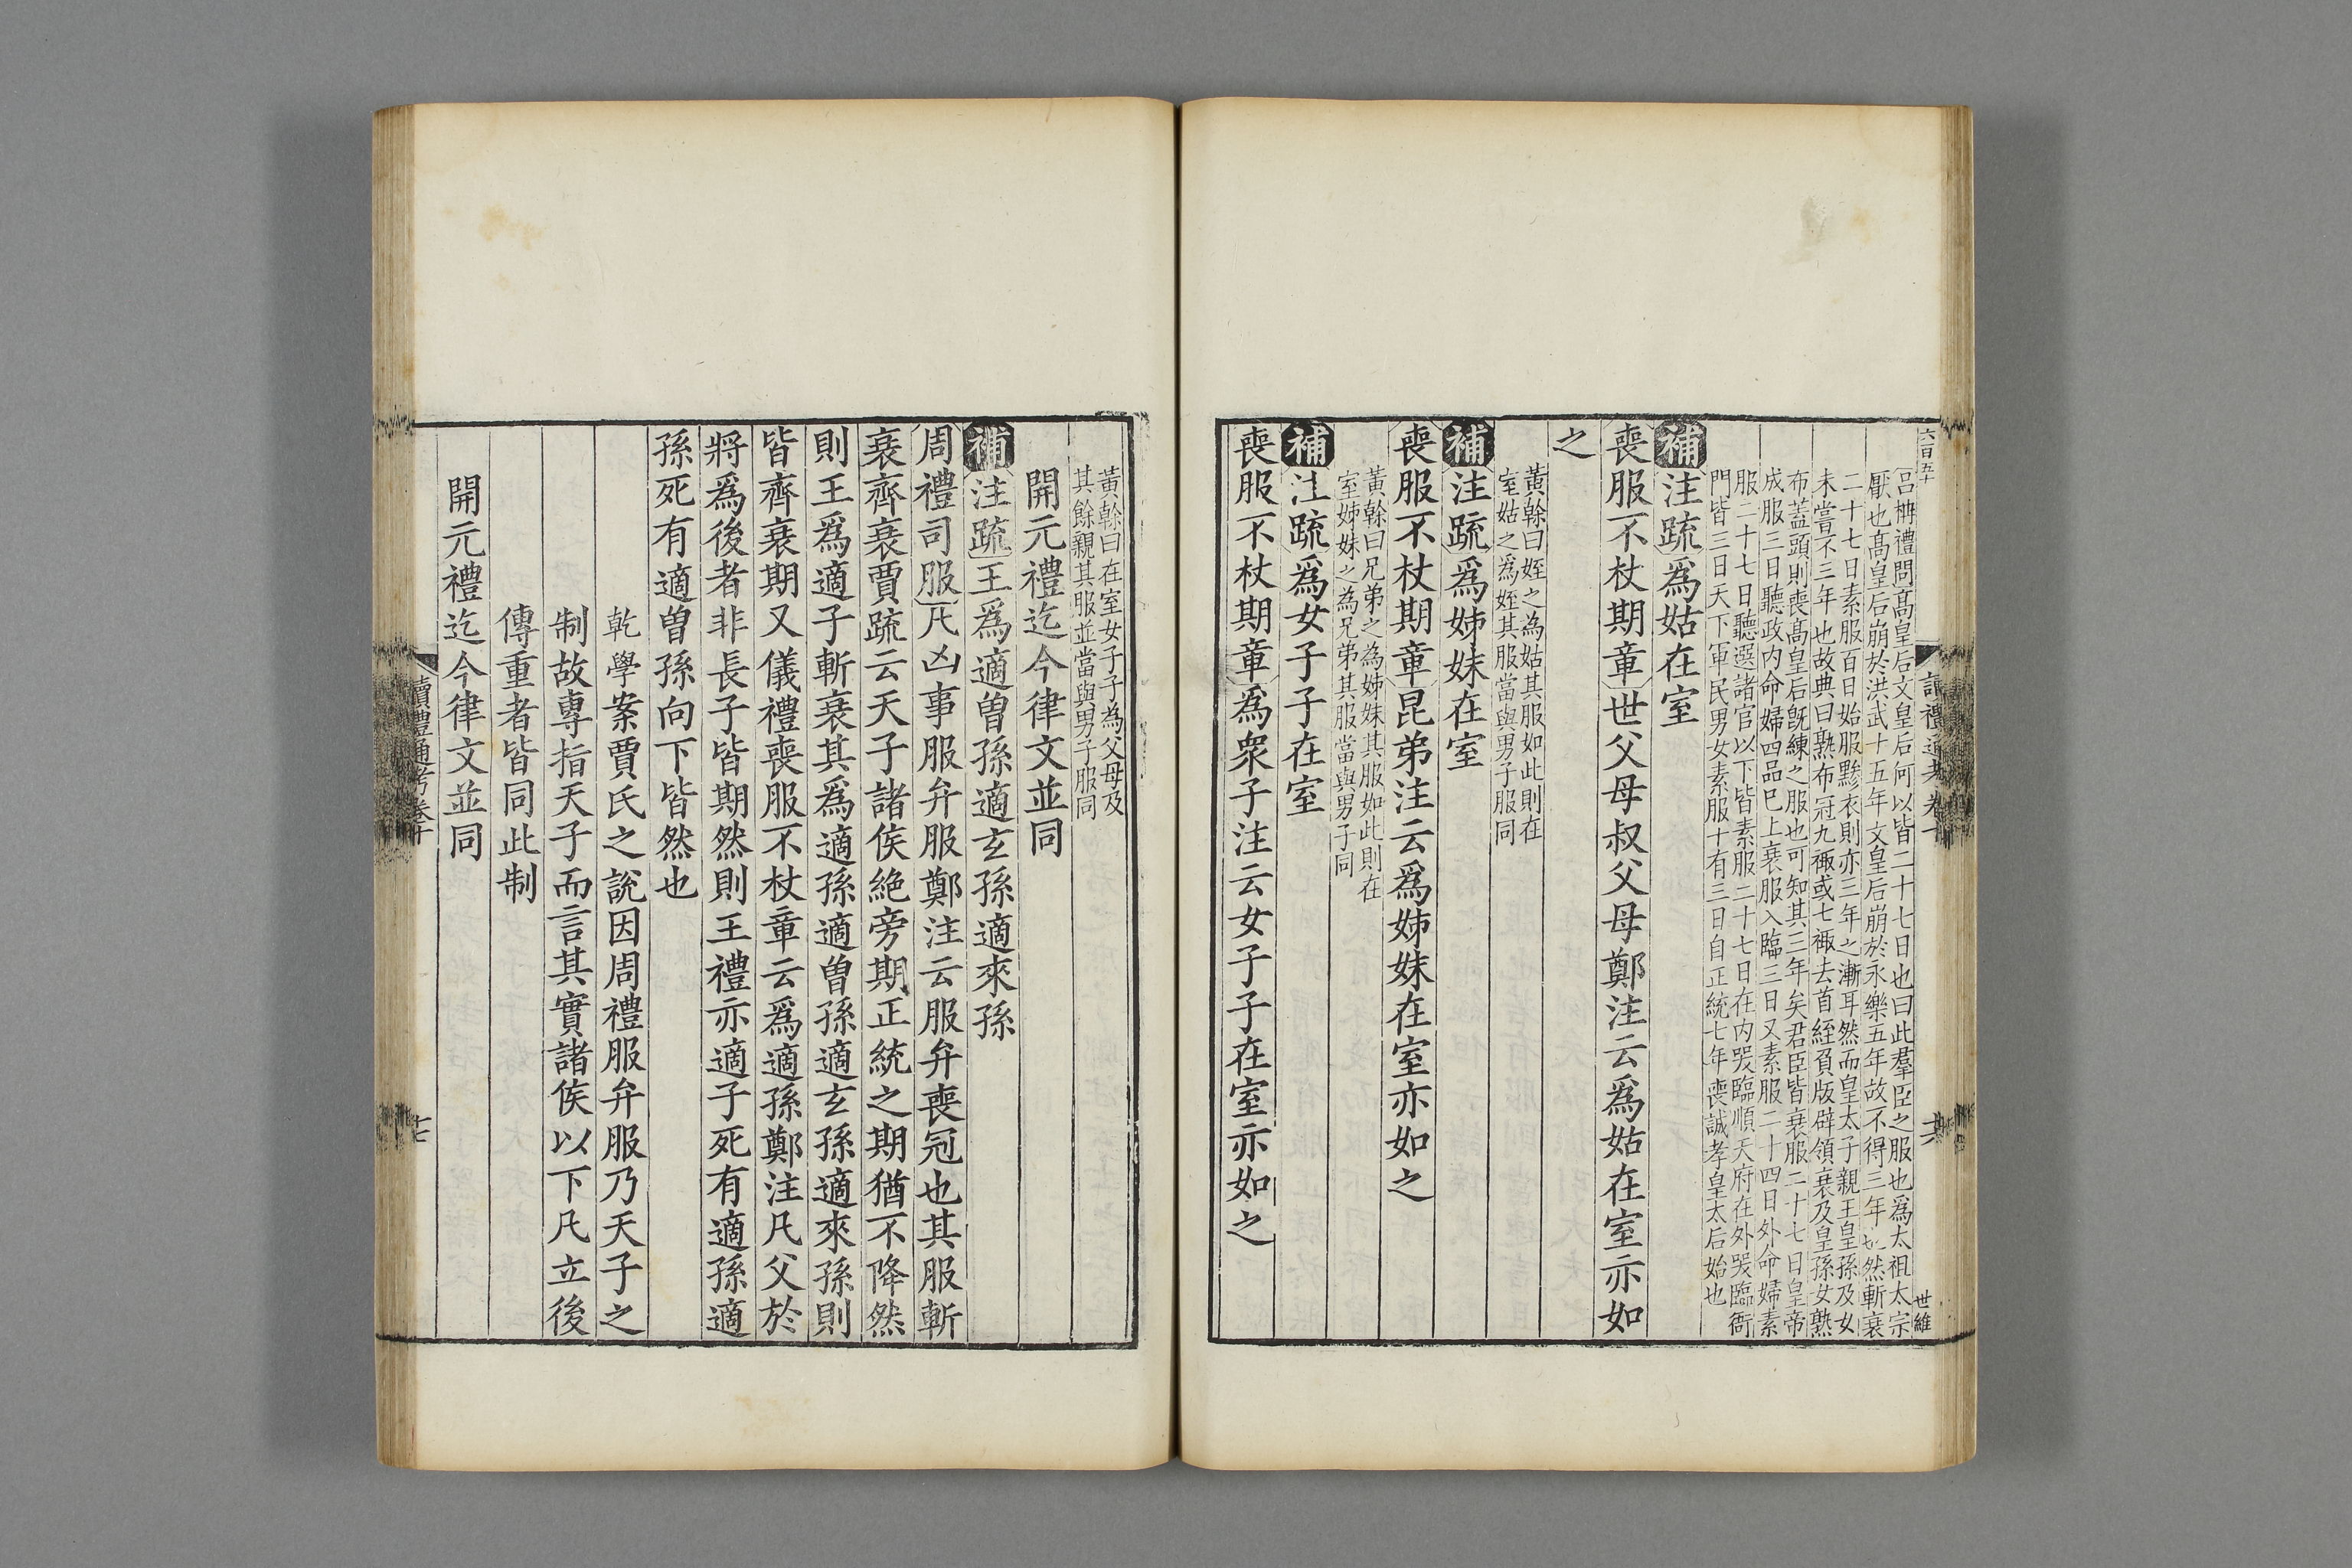 六百五十
呂柟禮問髙皇后文皇后何以皆二十七日也曰此羣臣之服也爲太祖太宗
厭也髙皇后崩於洪武十五年文皇后崩於永樂五年故不得三年也然斬衰
二十七日素服百日始服黪衣則亦三年之漸耳然而皇太子親王皇孫及女
未嘗不三年也故典曰熟布冠九襊或七襊去首絰負版辟領衰及皇孫女熟
布蓋頭則喪髙皇后旣練之服也可知其三年矣君臣皆衰服二十七日皇帝
成服三日聽政内命婦四品已上衰服入臨三日又素服二十四日外命婦素
服二十七日聽選諸官以下皆素服二十七日在内哭臨順天府在外哭臨衙
門皆三日天下軍民男女素服十有三日自正統七年喪誠孝皇太后始也
補注疏爲姑在室
喪服不杖期章世父母叔父母鄭注云爲姑在室亦如
之
黃榦曰姪之為姑其服如此則在
室姑之為姪其服當與男子服同
補注疏爲姊妹在室
喪服不杖期章昆弟注云爲姊妹在室亦如之
黃榦曰兄弟之為姊妹其服如此則在
室姊妹之為兄弟其服當與男子同
補注疏爲女子子在室
喪服不杖期章爲衆子注云女子子在室亦如之
讀禮通考卷十
十六
世維
黃榦曰在室女子子為父母及
其餘親其服並當與男子服同
開元禮迄今律文並同
補注疏王爲適曾孫適玄孫適來孫
周禮司服凡凶事服弁服鄭注云服弁喪冠也其服斬
衰齊衰賈疏云天子諸侯絶旁期正統之期猶不降然
則王爲適子斬衰其爲適孫適曾孫適玄孫適來孫則
皆齊衰期又儀禮喪服不杖章云爲適孫鄭注凡父於
將爲後者非長子皆期然則王禮亦適子死有適孫適
孫死有適曾孫向下皆然也
乾學案賈氏之說因周禮服弁服乃天子之
制故專指天子而言其實諸侯以下凡立後
傳重者皆同此制
開元禮迄今律文並同
讀禮通考卷十
十七